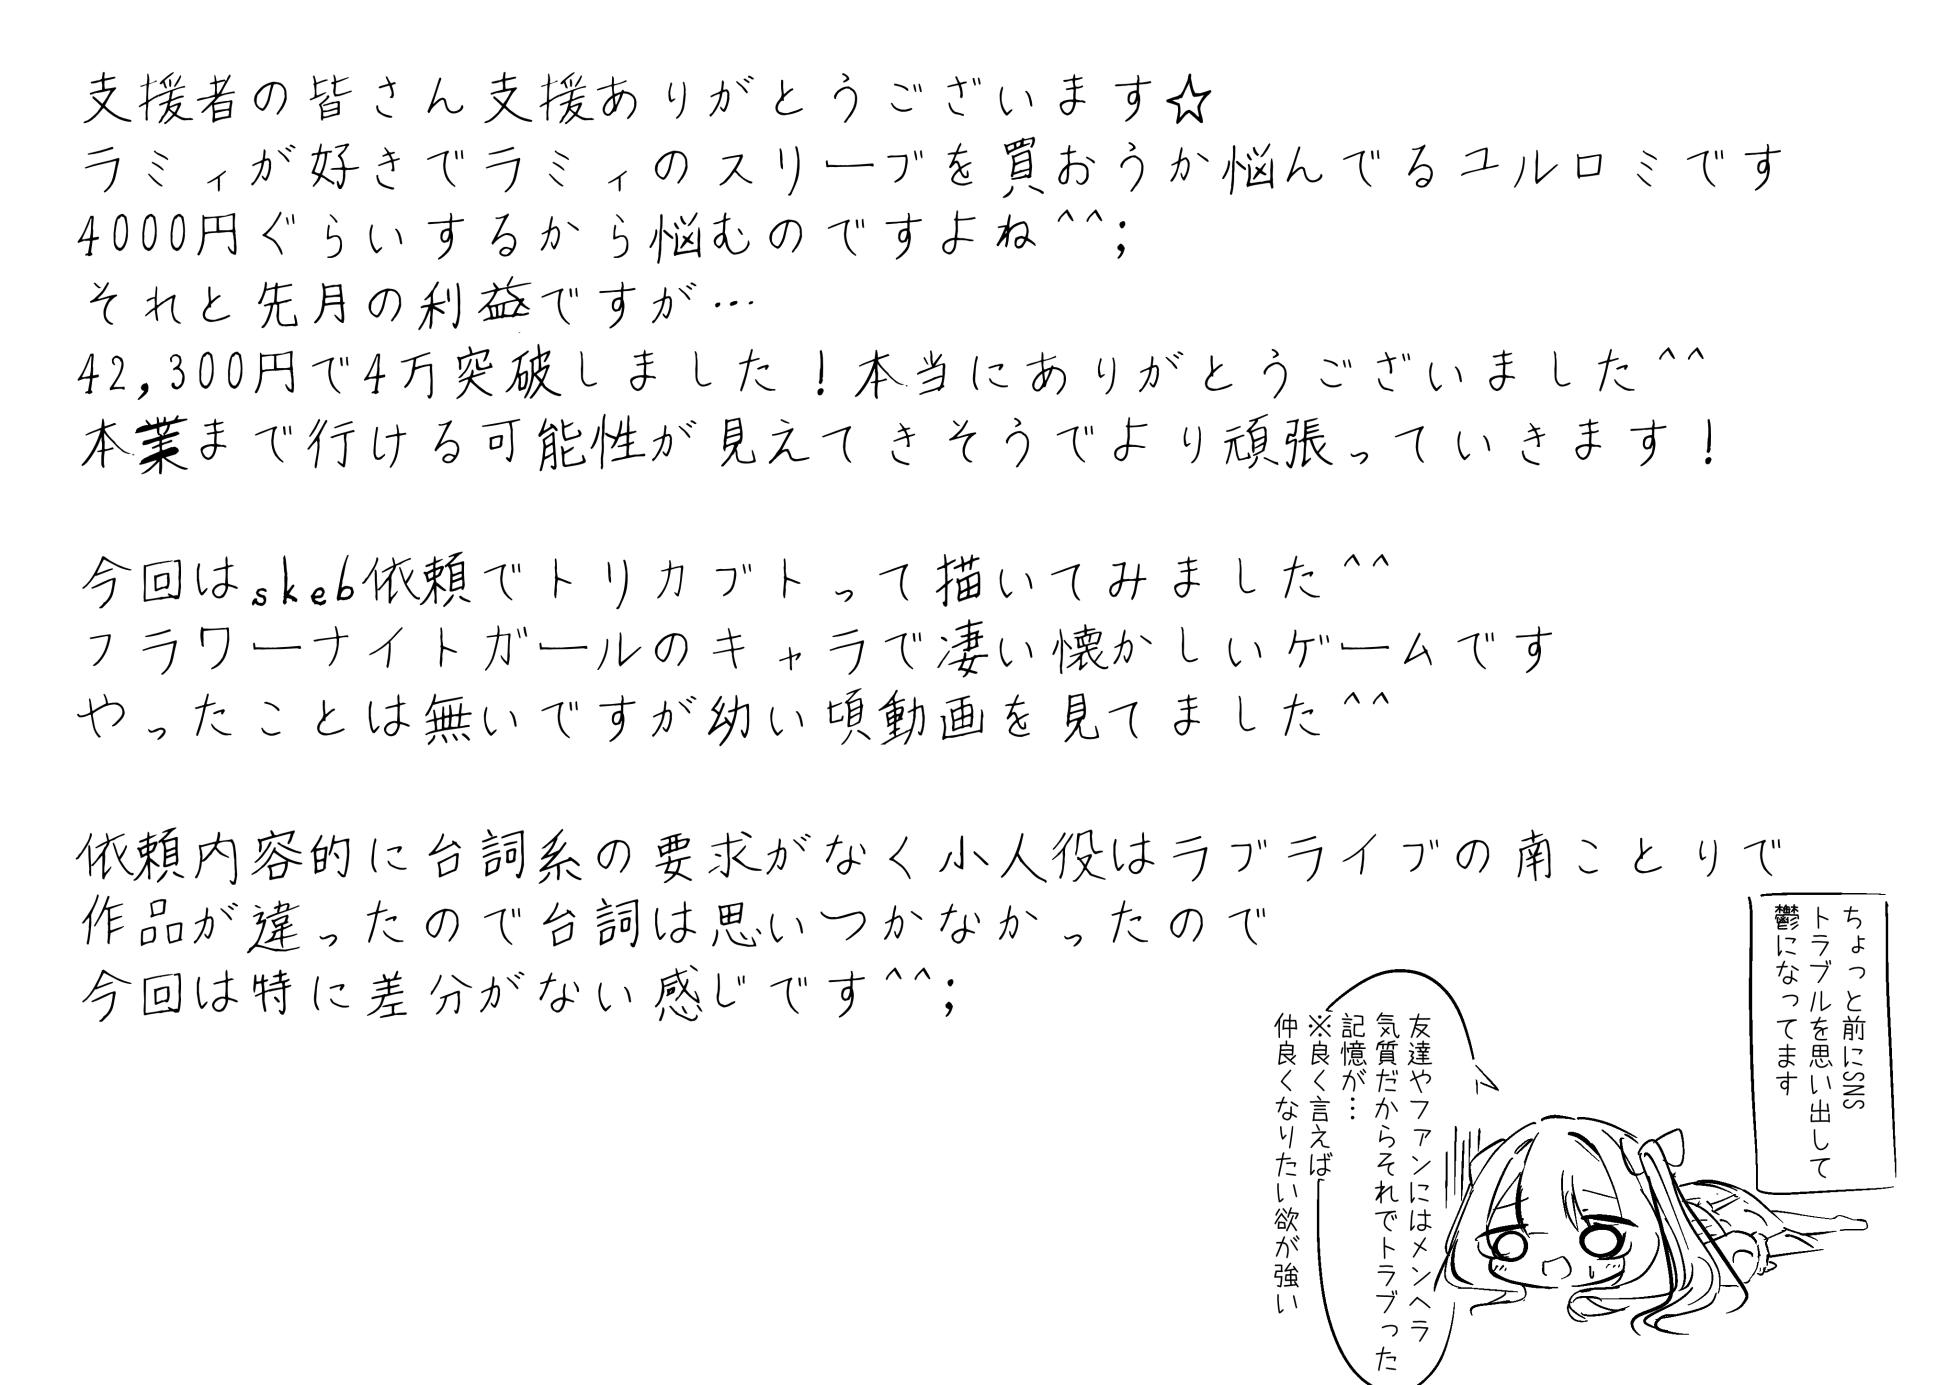 支援者の皆さん支援ありがとうございます☆
ラミィが好きでラミィのスリーブを買おうか悩んでるユルロミです
4000円ぐらいするから悩むのですよね^^;
それと先月の利益ですが…
42,300円で4万突破しました！本当にありがとうございました^^
本業まで行ける可能性が見えてきそうでより頑張っていきます！
今回はskeb依頼でトリカブトって描いてみました^^
フラワーナイトガールのキャラで凄い懐かしいゲームです
やったことは無いですが幼い頃動画を見てました^^
依頼内容的に台詞系の要求がなく小人役はラブライブの南ことりで
作品が違ったので台詞は思いつかなかったので
今回は特に差分がない感じです^^;
ちょっと前にSNS
トラブルを思い出して
鬱になってます
友達やファンにはメンヘラ
気質だからそれでトラブった
記憶が…
※良く言えば
仲良くなりたい欲が強い